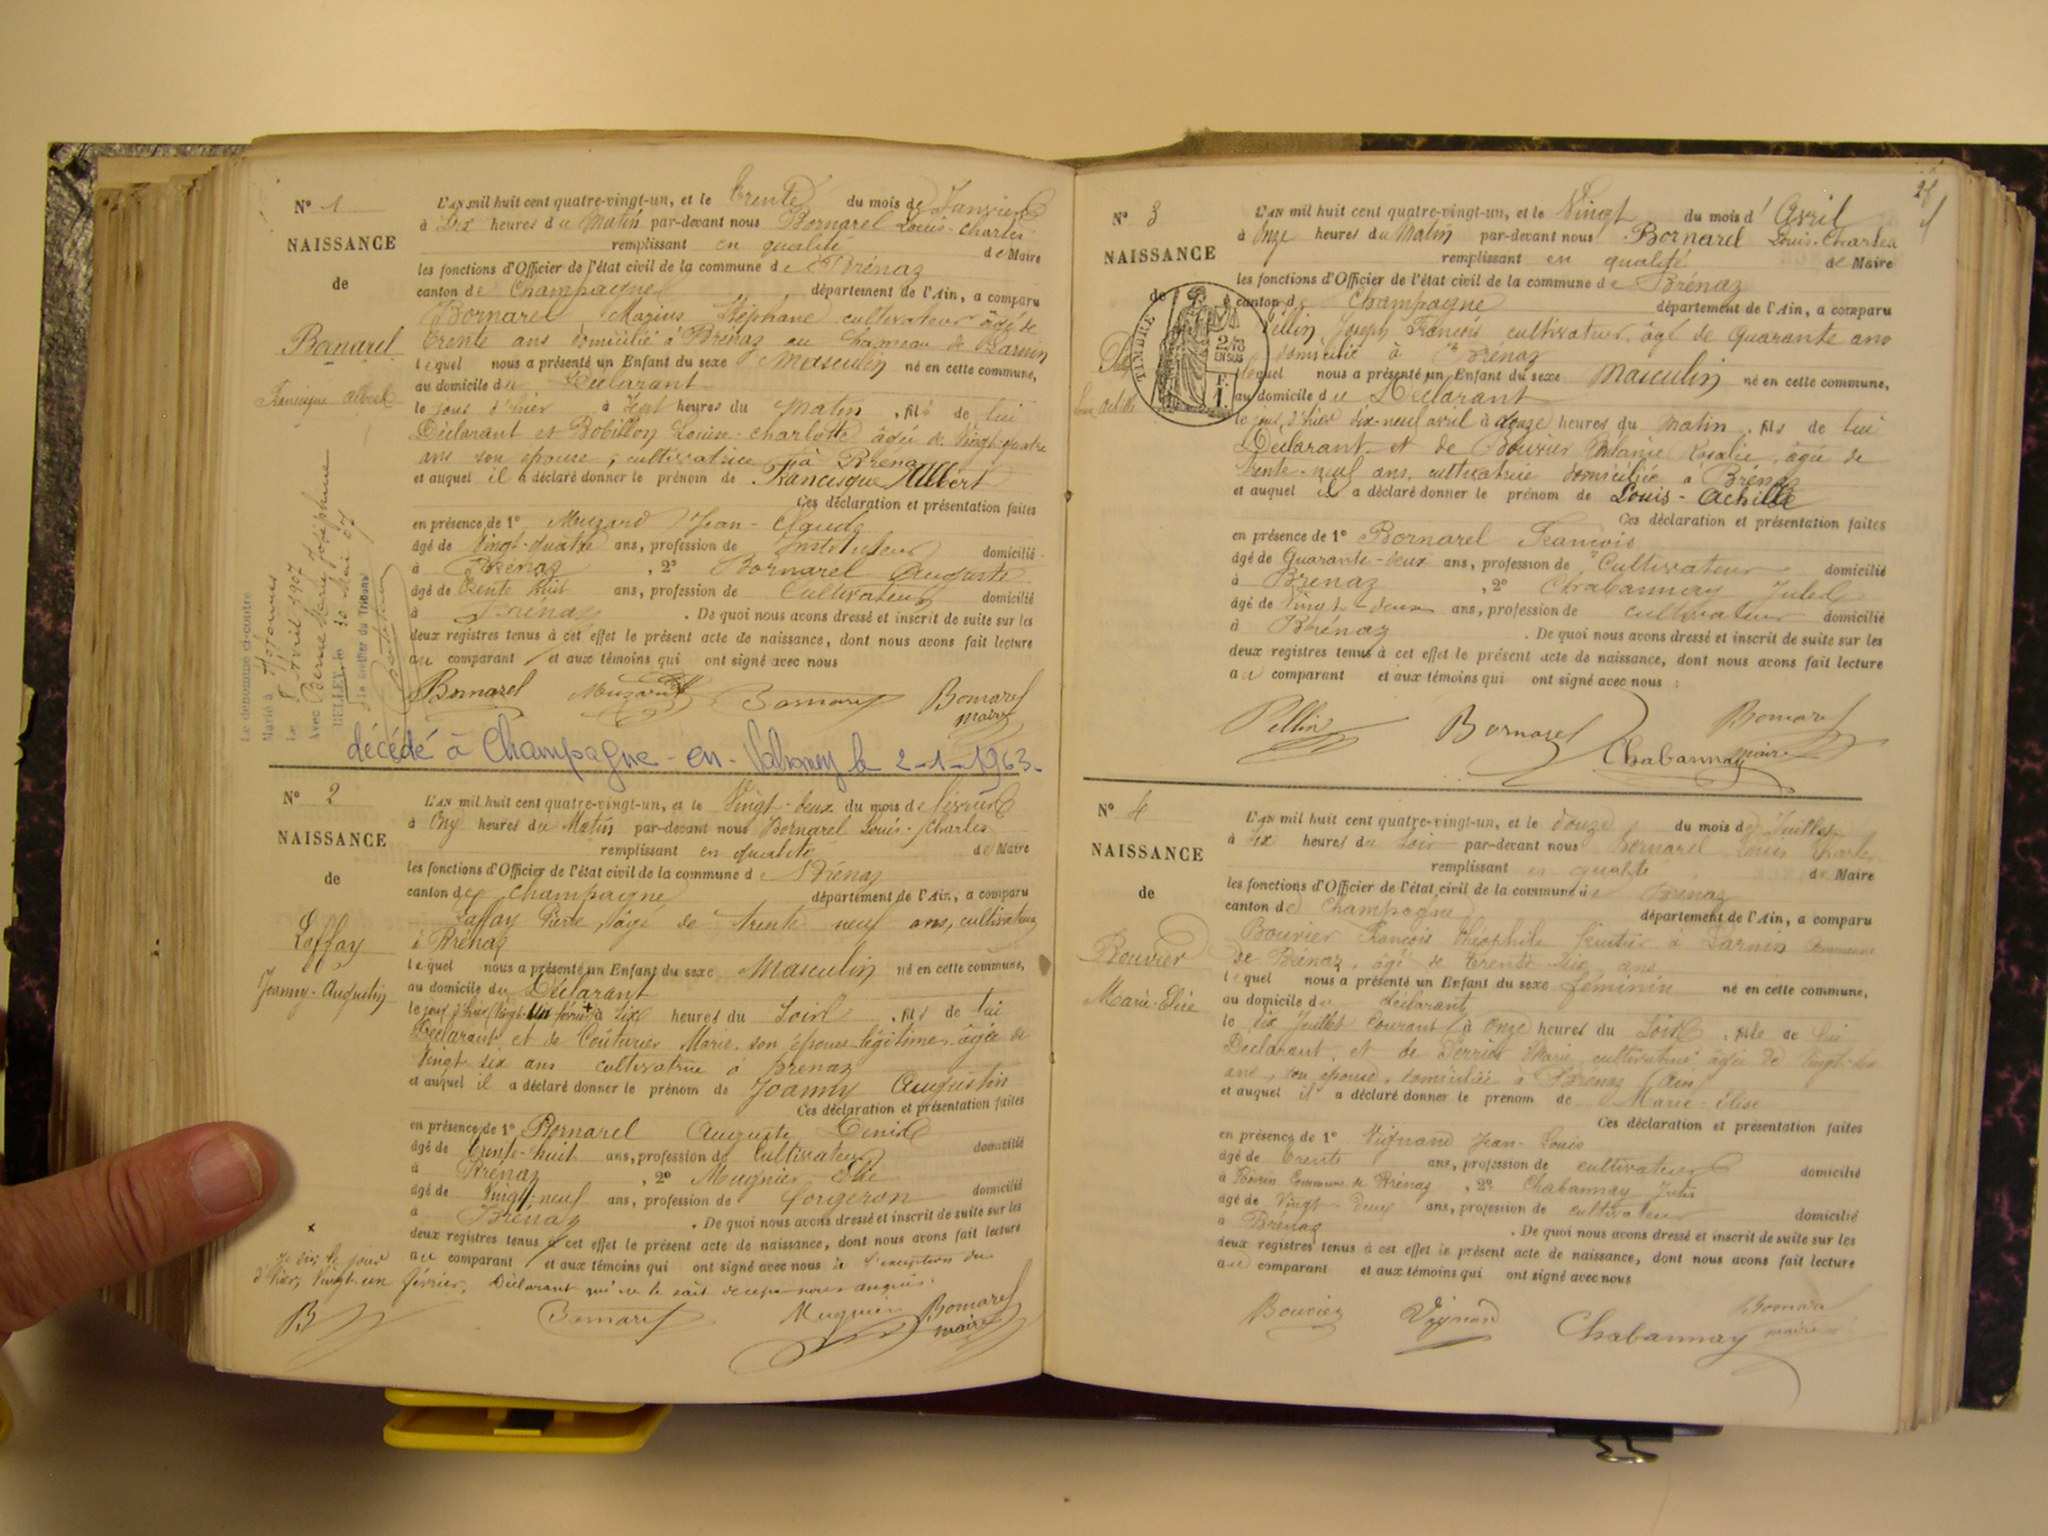 N° 1
NAISSANCE
de
Bornarel
Francisque Albert
L'AN mil huit cent quatre-vingt-un, et le Trente du mois de Janvier
à Dix heures du Matin par-devant nous Bornarel Louis-Charles
remplissant en qualité de Maire
les fonctions d'Officier de l'état civil de la commune de Brénaz
canton de Champagne département de l'Ain, a comparu
Bornarel Marius Stéphane cultivateur âgé de
trente ans domicilié à Brénaz au hameau de
lequel nous a présenté un Enfant du sexe Masculin né en cette commune,
au domicile du Déclarant
le jour d'hier à Sept heures du Matin, fils de lui
Déclarant et Bobillon Louise-Charlotte âgée de Vingt-quatre
ans son épouse, cultivatrice à Brénaz
et auquel il a déclaré donner le prénom de Francisque Albert
Ces déclaration et présentation faites
en présence de 1° Muzard Jean-Claude
âgé de Vingt-quatre ans, profession de Instituteur domicilié
à Brénaz, 2° Bornarel Auguste
âgé de Trente huit ans, profession de Cultivateur domicilié
à Brénaz. De quoi nous avons dressé et inscrit de suite sur les
deux registres tenus à cet effet le présent acte de naissance, dont nous avons fait lecture
au comparant et aux témoins qui ont signé avec nous
Bornarel Muzard Bornarel Bornarel
maire
Le dénommé ci-contre
Marié à
Le 8 Avril 1907
Avec Berne Marie Joséphine
BELLEY le 30 Mai 07
Le Greffier du Tribunal
décédé à Champagne-en-Valromey le 2-1-1963-
N° 2
NAISSANCE
de
Laffay
Joanny-Augustin
L'AN mil huit cent quatre-vingt-un, et le Vingt-deux du mois de février
à Onze heures du Matin par-devant nous Bornarel Louis-Charles
remplissant en qualité de Maire
les fonctions d'Officier de l'état civil de la commune de Brénaz
canton de Champagne département de l'Ain, a comparu
Laffay Pierre, âgé de trente neuf ans, cultivateur
à Brénaz
lequel nous a présenté un Enfant du sexe Masculin né en cette commune,
au domicile du Déclarant
le jour d'hier Vingt-un février à Six heures du Soir, fils de lui
Déclarant et de Couturier Marie son épouse légitime âgée de
Vingt six ans cultivatrice à Brénaz
et auquel il a déclaré donner le prénom de Joanny Augustin
Ces déclaration et présentation faites
en présence de 1° Bornarel Auguste Denis
âgé de trente-huit ans, profession de Cultivateur domicilié
à Brénaz, 2° Mugnier Elie
âgé de Vingt-neuf ans, profession de forgeron domicilié
à Brénaz. De quoi nous avons dressé et inscrit de suite sur les
deux registres tenus à cet effet le présent acte de naissance, dont nous avons fait lecture
au comparant et aux témoins qui ont signé avec nous à l'exception du
Déclarant qui ne le sait de ce par nous enquis.
x
Je dis, le jour
d'hier, Vingt-un février,
B Bornarel Mugnier Bornarel
maire
N° 3
NAISSANCE
de
TIMBRE
2/10
EN SUS
F.
1.
L'AN mil huit cent quatre-vingt-un, et le Vingt du mois d'Avril
à Onze heures du Matin par-devant nous Bornarel Louis-Charles
remplissant en qualité de Maire
les fonctions d'Officier de l'état civil de la commune de Brénaz
canton de Champagne département de l'Ain, a comparu
Pellin Joseph François cultivateur âgé de Quarante ans
domicilié à Brénaz
lequel nous a présenté un Enfant du sexe Masculin né en cette commune,
au domicile du Déclarant
le jour d'hier dix-neuf avril à onze heures du Matin, fils de lui
Déclarant et de Bouvier Mélanie Rosalie, âgée de
trente-neuf ans, cultivatrice domiciliée à Brénaz
et auquel il a déclaré donner le prénom de Louis-Achille
Ces déclaration et présentation faites
en présence de 1° Bornarel François
âgé de Quarante-deux ans, profession de Cultivateur domicilié
à Brénaz, 2° Chabannay Jules
âgé de Vingt-deux ans, profession de cultivateur domicilié
à Brénaz. De quoi nous avons dressé et inscrit de suite sur les
deux registres tenus à cet effet le présent acte de naissance, dont nous avons fait lecture
au comparant et aux témoins qui ont signé avec nous
Pellin Bornarel Chabannay Bornarel
maire
N° 4
NAISSANCE
de
Bouvier
Marie-Elise
L'AN mil huit cent quatre-vingt-un, et le douze du mois de Juillet
à Six heures du Soir par-devant nous Bornarel Louis Charles
remplissant en qualité de Maire
les fonctions d'Officier de l'état civil de la commune de Brénaz
canton de Champagne département de l'Ain, a comparu
Bouvier François Théophile fruitier à commune
de Brénaz, âgé de Trente six ans
lequel nous a présenté un Enfant du sexe féminin né en cette commune,
au domicile du déclarant
le dix Juillet Courant à Onze heures du Soir, fille de lui
Déclarant, et de Marie cultivatrice âgée de Vingt
ans, son épouse, domiciliée à Brénaz (Ain)
et auquel il a déclaré donner le prénom de Marie-Elise
Ces déclaration et présentation faites
en présence de 1° Vignand Jean-Louis
âgé de trente ans, profession de cultivateur domicilié
à Commune de Brénaz, 2° Chabannay Jules
âgé de Vingt deux ans, profession de cultivateur domicilié
à Brénaz. De quoi nous avons dressé et inscrit de suite sur les
deux registres tenus à cet effet le présent acte de naissance, dont nous avons fait lecture
au comparant et aux témoins qui ont signé avec nous
Bouvier Vignand Chabannay Bornarel
maire